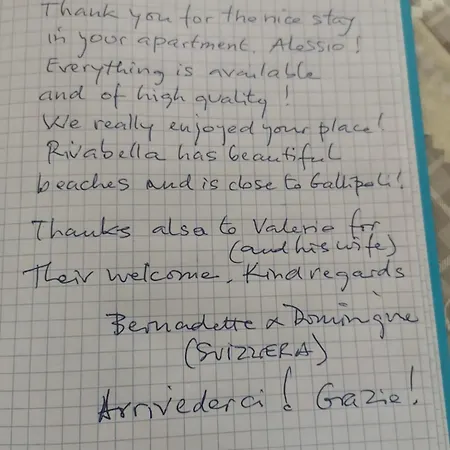 Thank you for the nice stay
in your apartment, Alessio!
Everything is available
and of high quality!
We really enjoyed your place!
Rivabella has beautiful
beaches and is close to Gallipoli!
Thanks also to Valerio for
(and his wife)
Their welcome. Kind regards
Bernadette & Dominique
(SVIZZERA)
Arrivederci! Grazie!